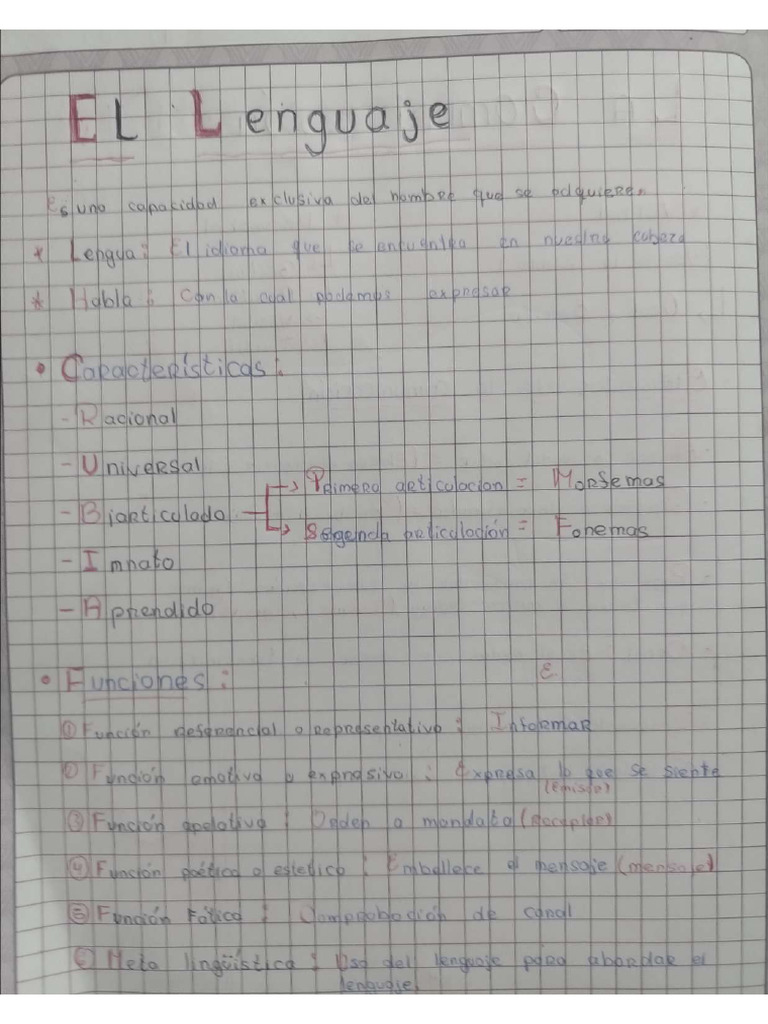 EL Lenguaje
Es una capacidad exclusiva del hombre que se adquieren
* Lengua: El idioma que se encuentra en nuestra cabeza
* Habla: Con la cual podemos expresar
• Características:
- Racional
- Universal
- Biarticulado
→ Primera articulacion = Morfemas
→ Segenda articulación = Fonemas
- Innato
- Aprendido
• Funciones:
E.
① Función referencial o representativo: Informar
Función emotiva o expresiva: Expresa lo que se siente
(Emisor)
③ Función apelativa: Orden o mandato (Receptor)
④ Función poética o estetico: Embellece el mensaje (mensaje)
⑤ Función Fática: Comprobación de canal
⑥ Meta lingüística: Uso del lenguaje para abordar el
lenguaje